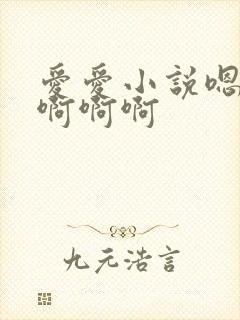 愛愛小說嗯
啊啊啊
九元浩言